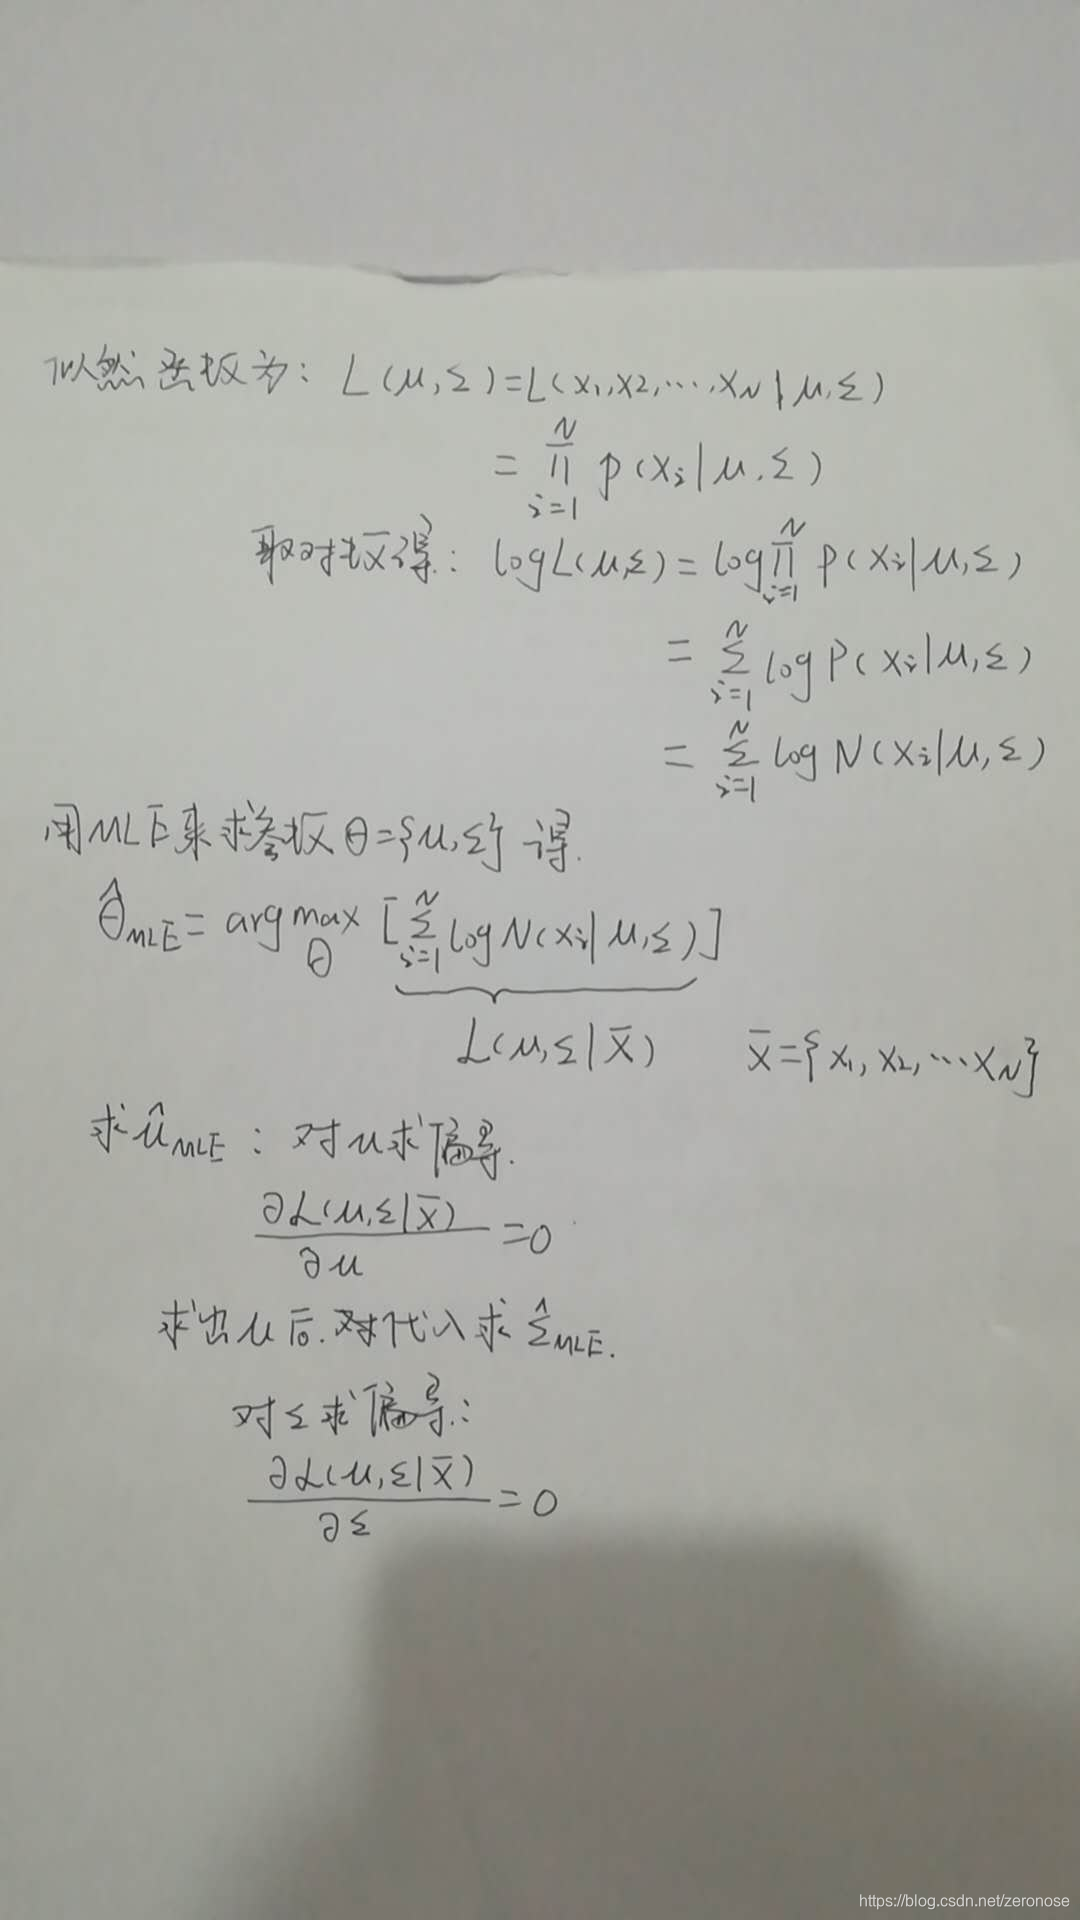 似然函数为: L(μ,Σ)=L(x₁,x₂,…,x_N|μ,Σ)
= ∏_{i=1}^{N} p(x_i|μ,Σ)
取对数得: logL(μ,Σ) = log∏_{i=1}^{N} p(x_i|μ,Σ)
= Σ_{i=1}^{N} log P(x_i|μ,Σ)
= Σ_{i=1}^{N} log N(x_i|μ,Σ)
用MLE来求参数θ={μ,Σ}得.
θ̂_MLE = argmax_θ [Σ_{i=1}^{N} log N(x_i|μ,Σ)]
L(μ,Σ|X̄) X̄={x₁,x₂,…x_N}
求μ̂_MLE: 对μ求偏导.
∂L(μ,Σ|X̄)/∂μ =0
求出μ后.对代入求Σ̂_MLE.
对Σ求偏导:
∂L(μ,Σ|X̄)/∂Σ =0
https://blog.csdn.net/zeronose